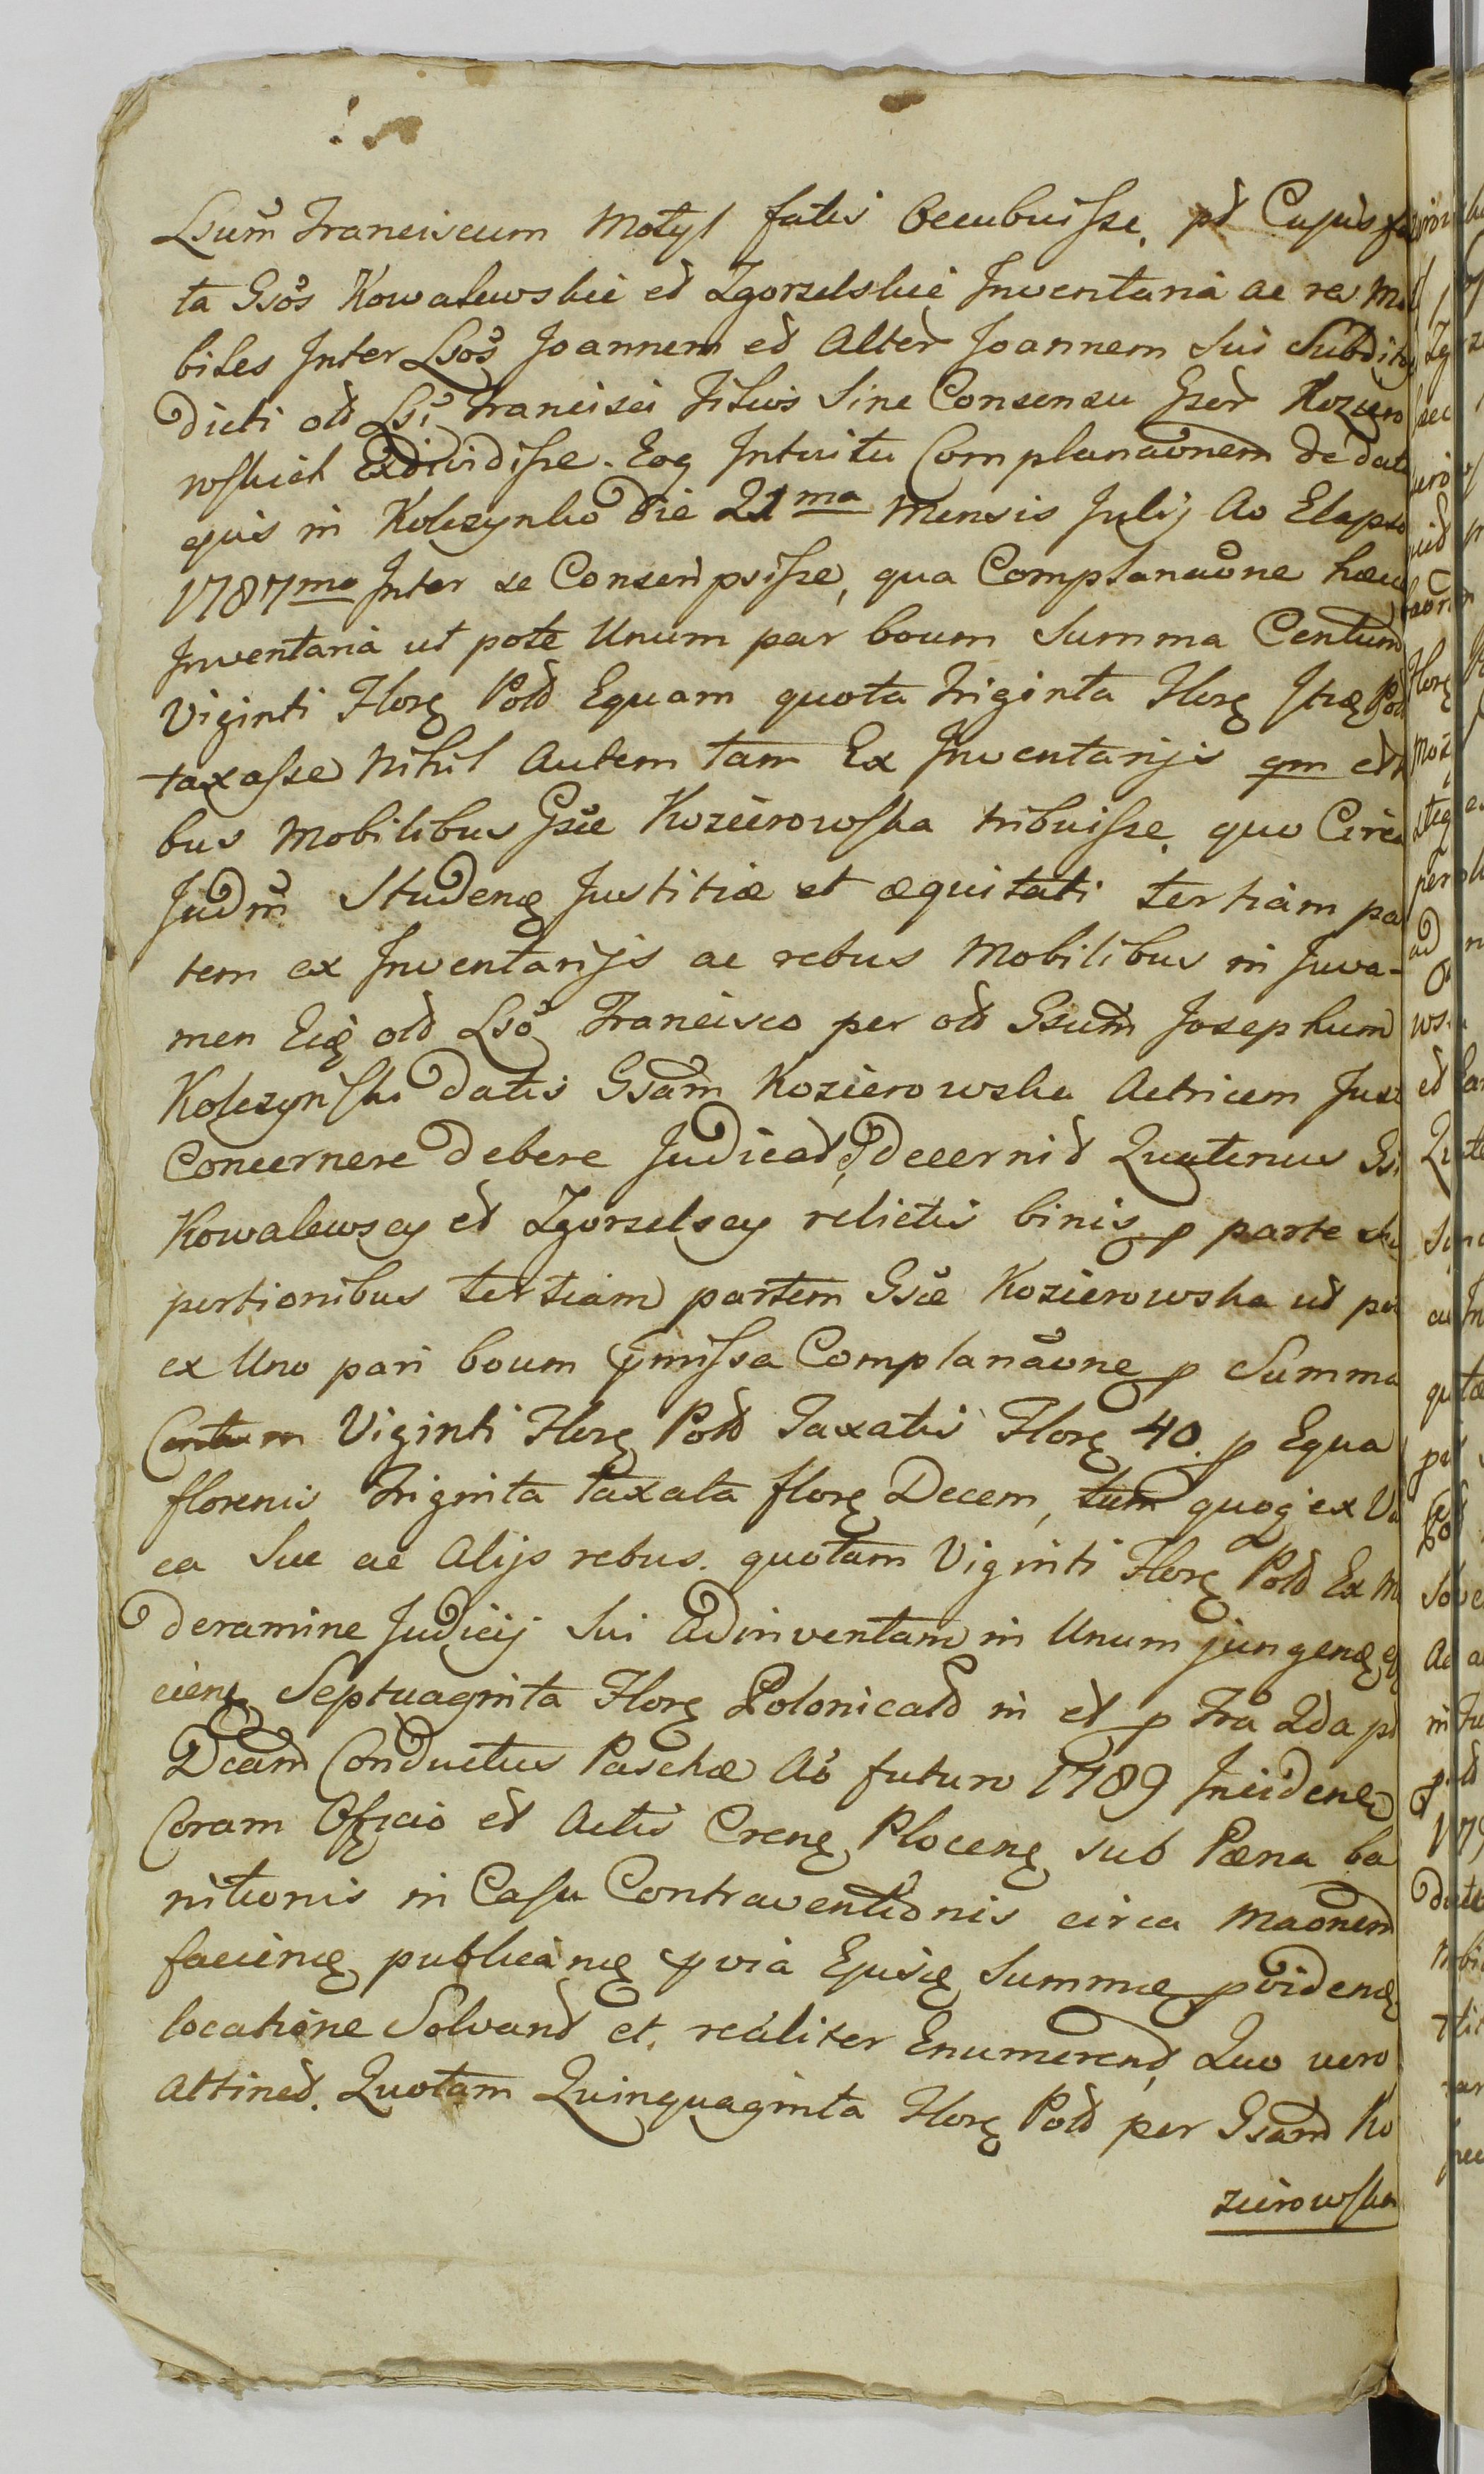 Lsum Franciscum Motyl fatis Occubuisse, pt Cujus fa
ta Gsos Kowalewskie et Zgorzelskie Inventaria ac res Mo
biles Inter Lsos Joannem et Alter Joannem Sui Subditos
dicti olt Lsi Francisci Filios Sine Consensu Gser Koziero
wskich Exdividisse. Eoq Intuitu Complanaõnem de data
ejus in Kolczynko die 21ma Mensis Julij Ao Elapso
1787mo Inter se Conscripsisse, qua Complanaõne hæc
Inventaria ut pote Unum par boum Summa Centum
Viginti Flore Polt Equam quota Triginta Flore Polt
taxasse Nihil Autem tam Ex Inventarijs qm et
bus Mobilibus Gsæ Kozierowska tribuisse, quo Circa
Judm Studenę Justitiæ et æquitati tertiam par
tem ex Inventarijs ac rebus Mobilibus in Juva-
men Eię olt Lso Francisco per olt Gsum Josephum
Kolczynski datis Gsam Kozierowska Actricem Juste
Concernere debere Judicat, decernit Quatenus Gsi
Kowalewscy et Zgorzelscy relictis binis p parte sui
portionibus tertiam partem Gsæ Kozierowska ut pote
ex Uno pari boum pmissa Complanaõne p Summa
Centum Viginti Flore Polt Taxatis Flore 40. p Equa
florenis Triginta taxata flore Decem, tum quoq ex Va
ca Sue ac Alijs rebus. quotam Viginti Flore Polt Ex Mo
deramine Judicij Sui Adinventam in Unum jungenę
cienę Septuaginta Flore Polonicalt in et p Fra 2da pt
Dcam Conductus Paschæ Ao futuro 1789 Incidenę
Coram Officio et Actis Crenę Plocenę sub Pæna ba
nitionis in Casu Contraventionis circa Maonem
facienę publicanę pvia Ejusę Summę pvidenę
locatione Solvand et. realiter Enumerend, Quo vero
Attinet. Quotam Quinquaginta Flore Polt per Gsam Ko
zierowska